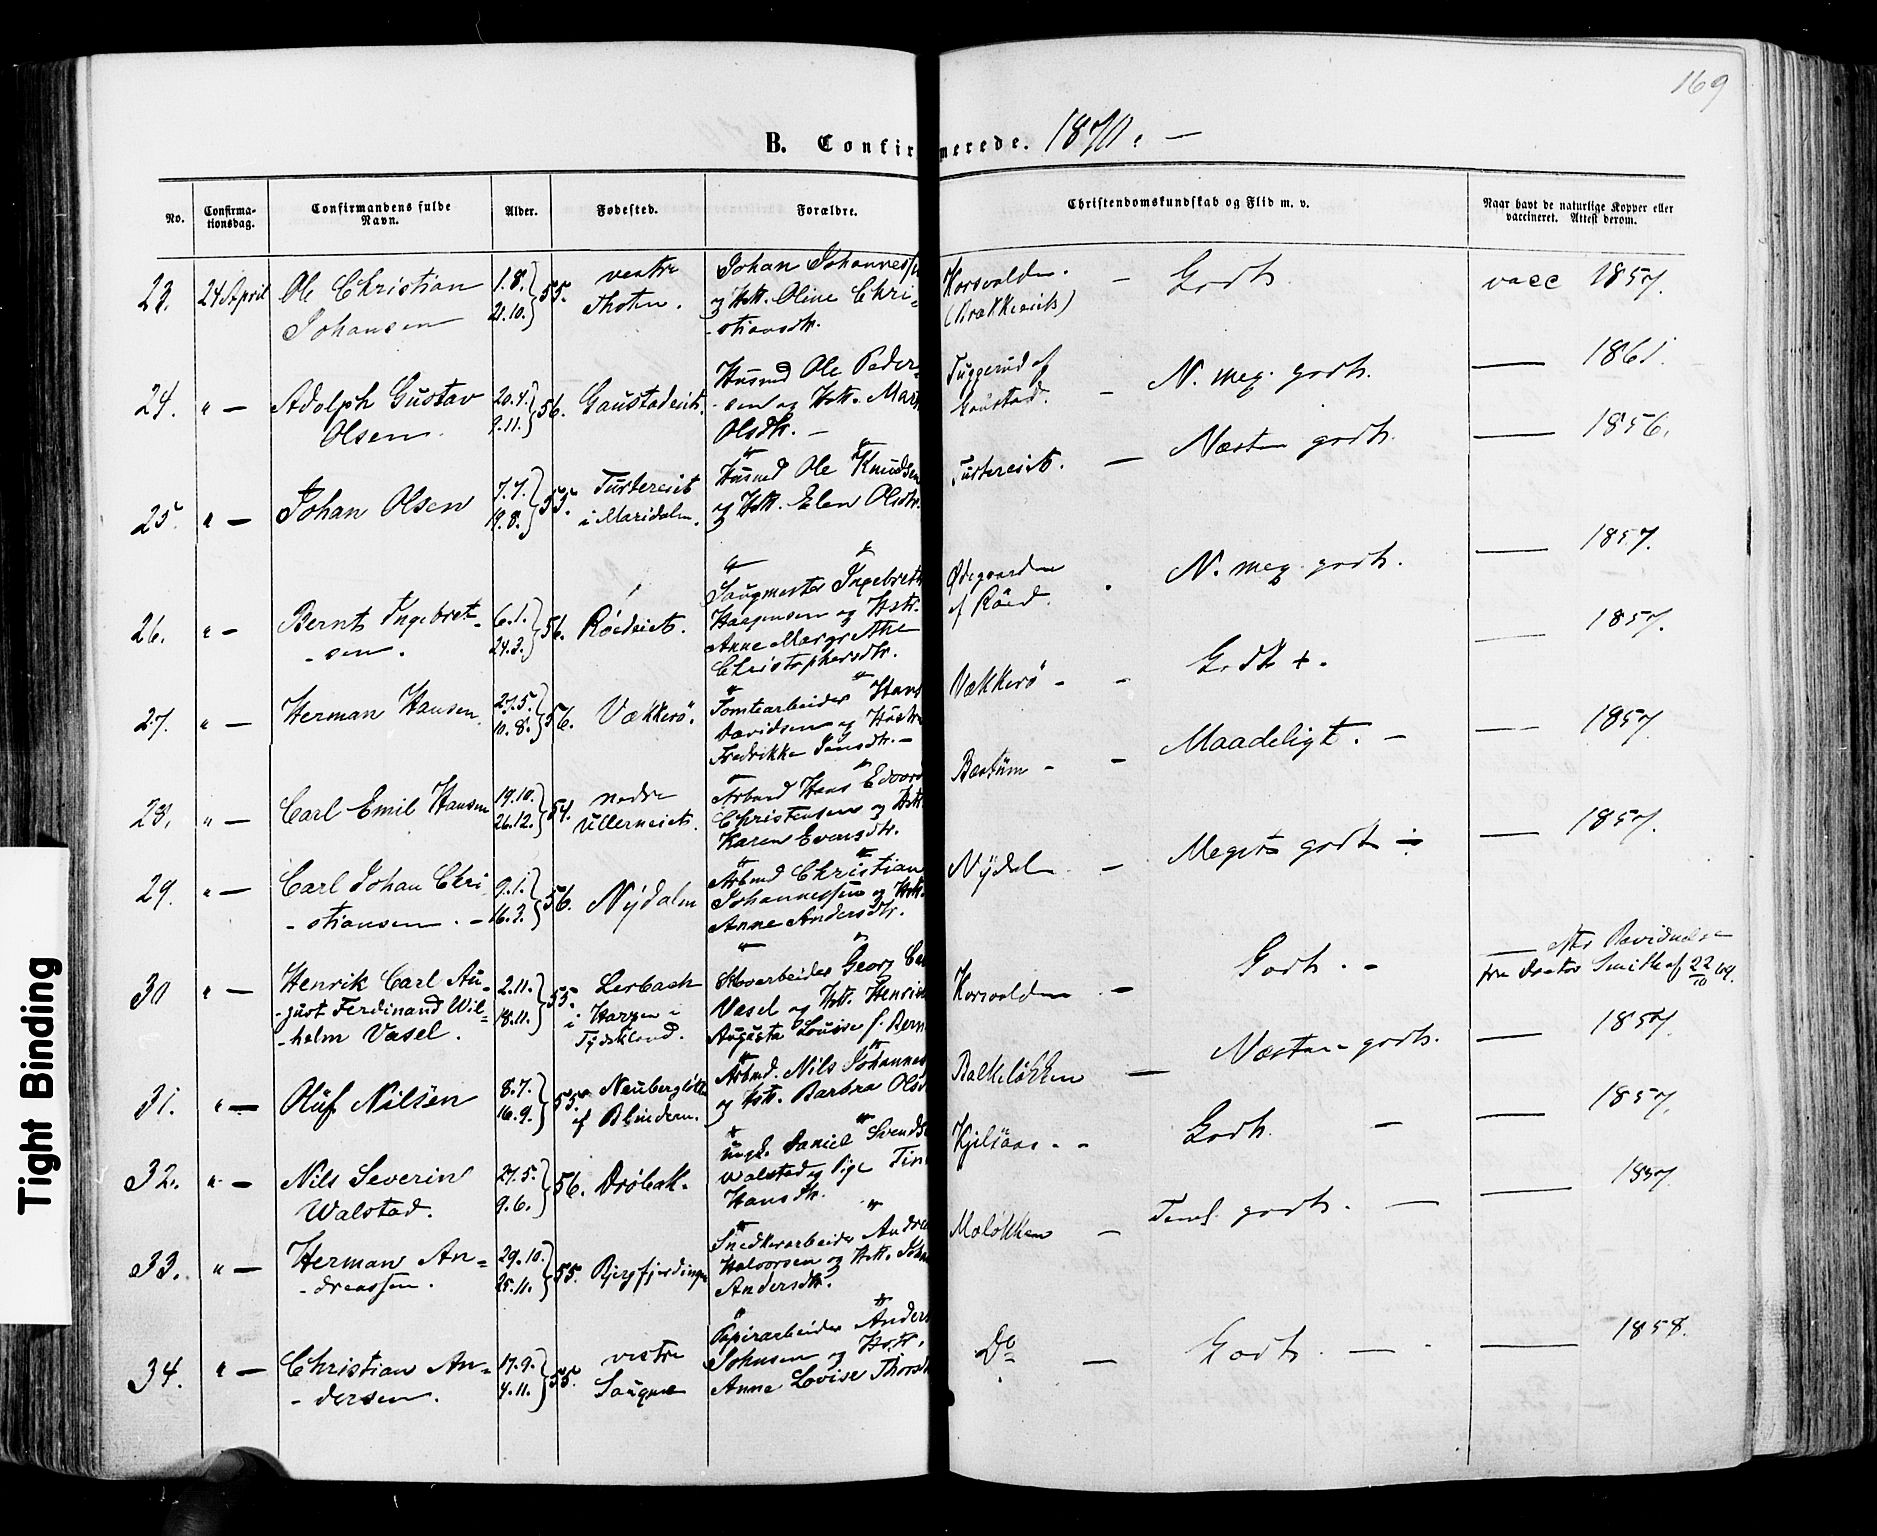 169
B. Confirmerede. 1870. —
No.
Confirma-
tionsdag.
Confirmandens fulde
Navn.
Alder.
Fødested.
Forældre.
Christendomskundskab og Flid m. v.
Naar havt de naturlige Kopper eller
vaccineret. Attest derom.
23. 24 April Ole Christian
Johansen
1.8.
21.10. 55.
vestre
Thoten.
Johan Johannessen
og Hst. Oline Chri-
-stiansdtr.
Korsvolden.
— Godt. vacc 1857.
24. " — Adolph Gustav
Olsen.
20.4.
9.11. 56.
Gaustadeiet.
Husmd Ole Peder-
-sen og Hst. Mar
Olsdtr. —
Tuggerud af
Gaustad.
— N. meg. godt. — 1861.
25. " — Johan Olsen
7.7.
19.8. 55.
Turtereiet
i Maridalen.
Husmd Ole Knudsen
og Hst. Elen Olsdtr.
Turtereiet. — Næsten godt. — 1856.
26. " — Bernt Ingebret-
-sen.
6.1.
24.3. 56.
Røedeiet.
Saugmester Ingebret
Haagensen og Hstr.
Anne Margrethe
Christophersdtr.
Ødegaarden
af Røed.
N. meg godt. — 1857.
27. " — Herman Hansen.
27.5.
10.8. 56.
Vækkerö.
Tomtearbeider Hans
Davidsen og Hustr
Fredrikke Jensdtr. —
Vækkerö - - Godt +. — 1857.
28. " — Carl Emil Hansen
19.10.
26.12. 54.
nedre
Ullerneiet.
Arbmd Hans Edvard
Christensen og Hst
Karen Evensdtr.
Bestum - - Maadeligt. — — 1857.
29. " — Carl Johan Chri
-stiansen. —
9.1.
16.3. 56.
Nydalen
Arbmd Christian
Johannessen og Hst.
Anne Andersdtr.
Nydal — Meget godt — 1857.
30 " — Henrik Carl Au-
-gust Ferdinand Wil-
-helm Vasel.
2.11.
18.11. 55.
Lerbach
i Harzen i
Tydskland.
Georg Ca
Vasel og Hst. Henrie
Augusta Louise f. Bern
Korsvolden. — Godt. - —
fra Doctor Smith af 22/10 69.
31. " — Oluf Nilsen
8.7.
16.9. 55.
Neubergløkk
af Blindern.
Arbmd. Nils Johannes
og Hst. Barbra Olsd
Balkeløkken — Næsten godt. — 1857.
32. " — Nils Severin
Walstad.
27.5.
9.6. 56.
Drøbak.
ungk. Daniel Svends
Walstad og Pige Tin
Hansdtr.
Kjelsaas - - Godt. — — 1857.
33. " — Herman An-
-dreassen.
29.10.
25.11. 55.
Bjergfjerdingen
Snedkerarbeider Andrea
Halvorsen og Hst. Joha
Andersdtr.
Moløkken — Teml. godt. — — 1857.
34. " — Christian An-
-dersen.
17.9.
4.11. 55.
vestre
Saugene
Papirarbeider Anders
Johnsen og Hstr.
Anne Lovise Thorsd
Do — Godt. — — 1858.
Tight Binding